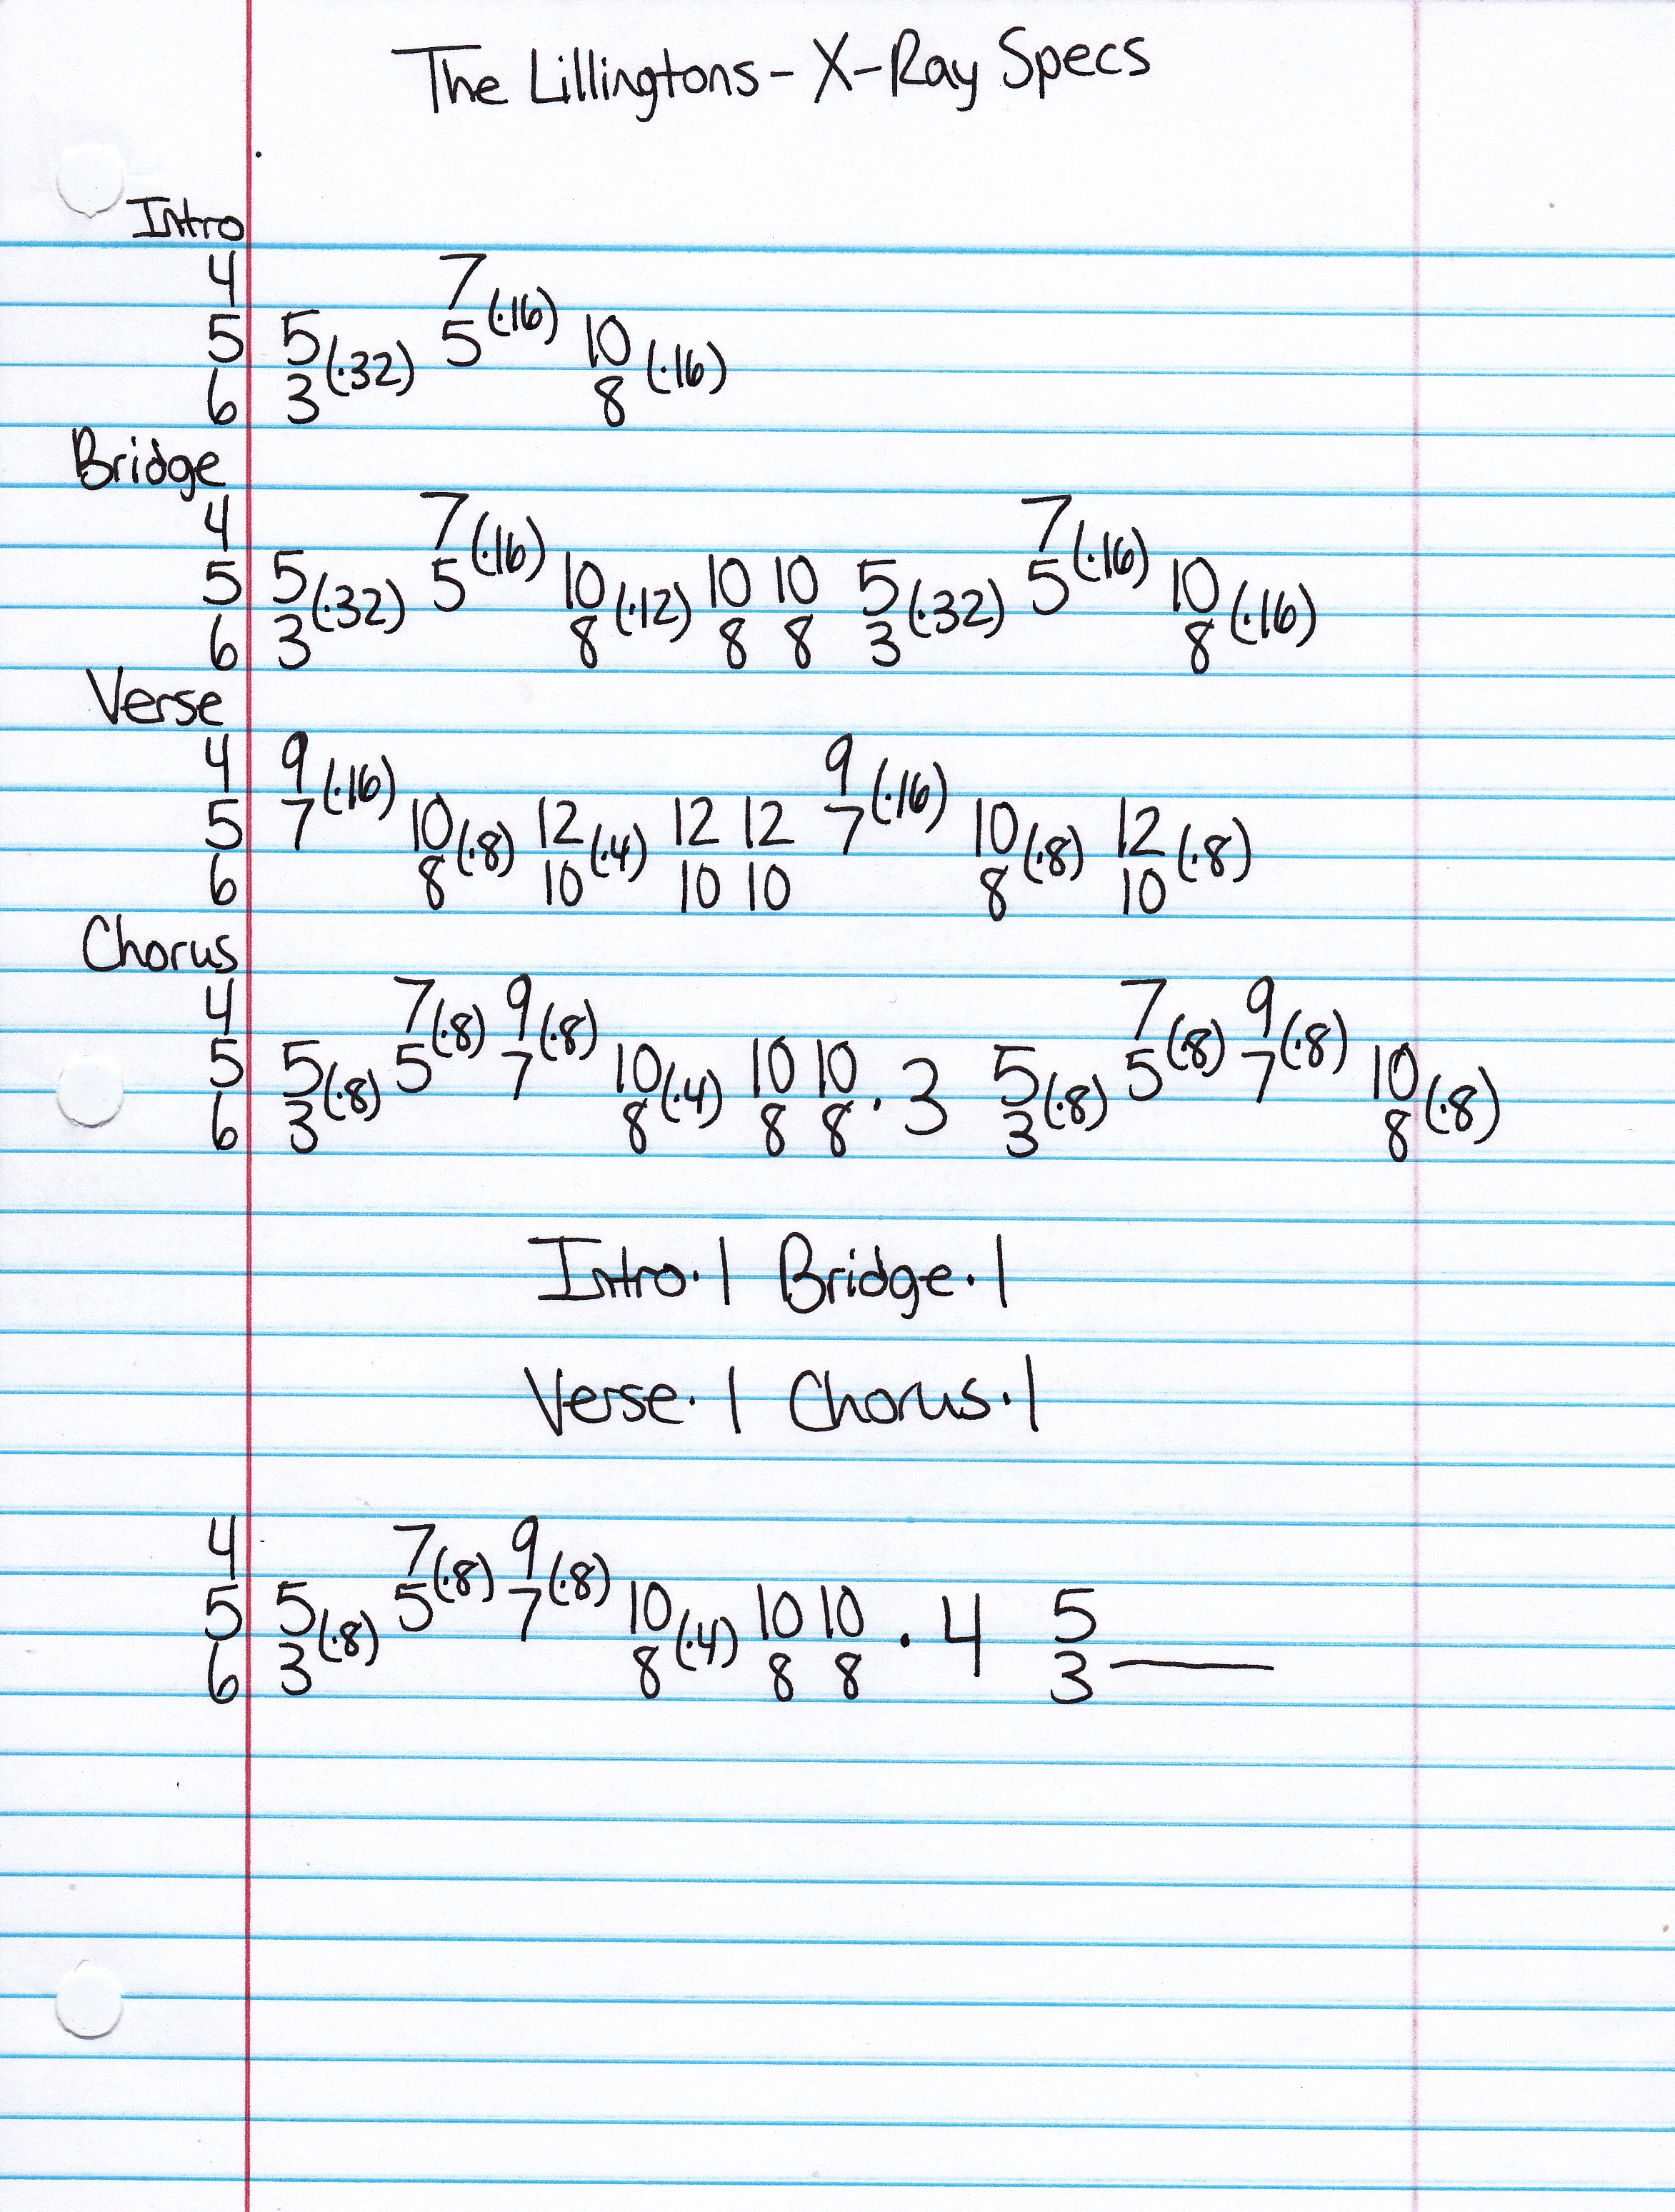 The Lillingtons - X-Ray Specs
Intro
4 7
5 5 (·32) 5 (·16) 10
6 3 8 (·16)
Bridge
4 7 7
5 5 (·32) 5 (·16) 10 (·12) 10 10 5 (·32) 5 (·16) 10 (·16)
6 3 8 8 8 3 8
Verse
4 9 (·16) 9 (·16)
5 7 10 (·8) 12 (·4) 12 12 7 10 (·8) 12 (·8)
6 8 10 10 10 8 10
Chorus
4 7 (·8) 9 (·8) 7 (·8) 9 (·8)
5 5 (·8) 5 7 10 (·4) 10 10 · 3 5 (·8) 5 7 10 (·8)
6 3 8 8 8 3 8
Intro · 1 Bridge · 1
Verse · 1 Chorus · 1
4 7 (·8) 9 (·8)
5 5 (·8) 5 7 10 (·4) 10 10 · 4 5
6 3 8 8 8 3